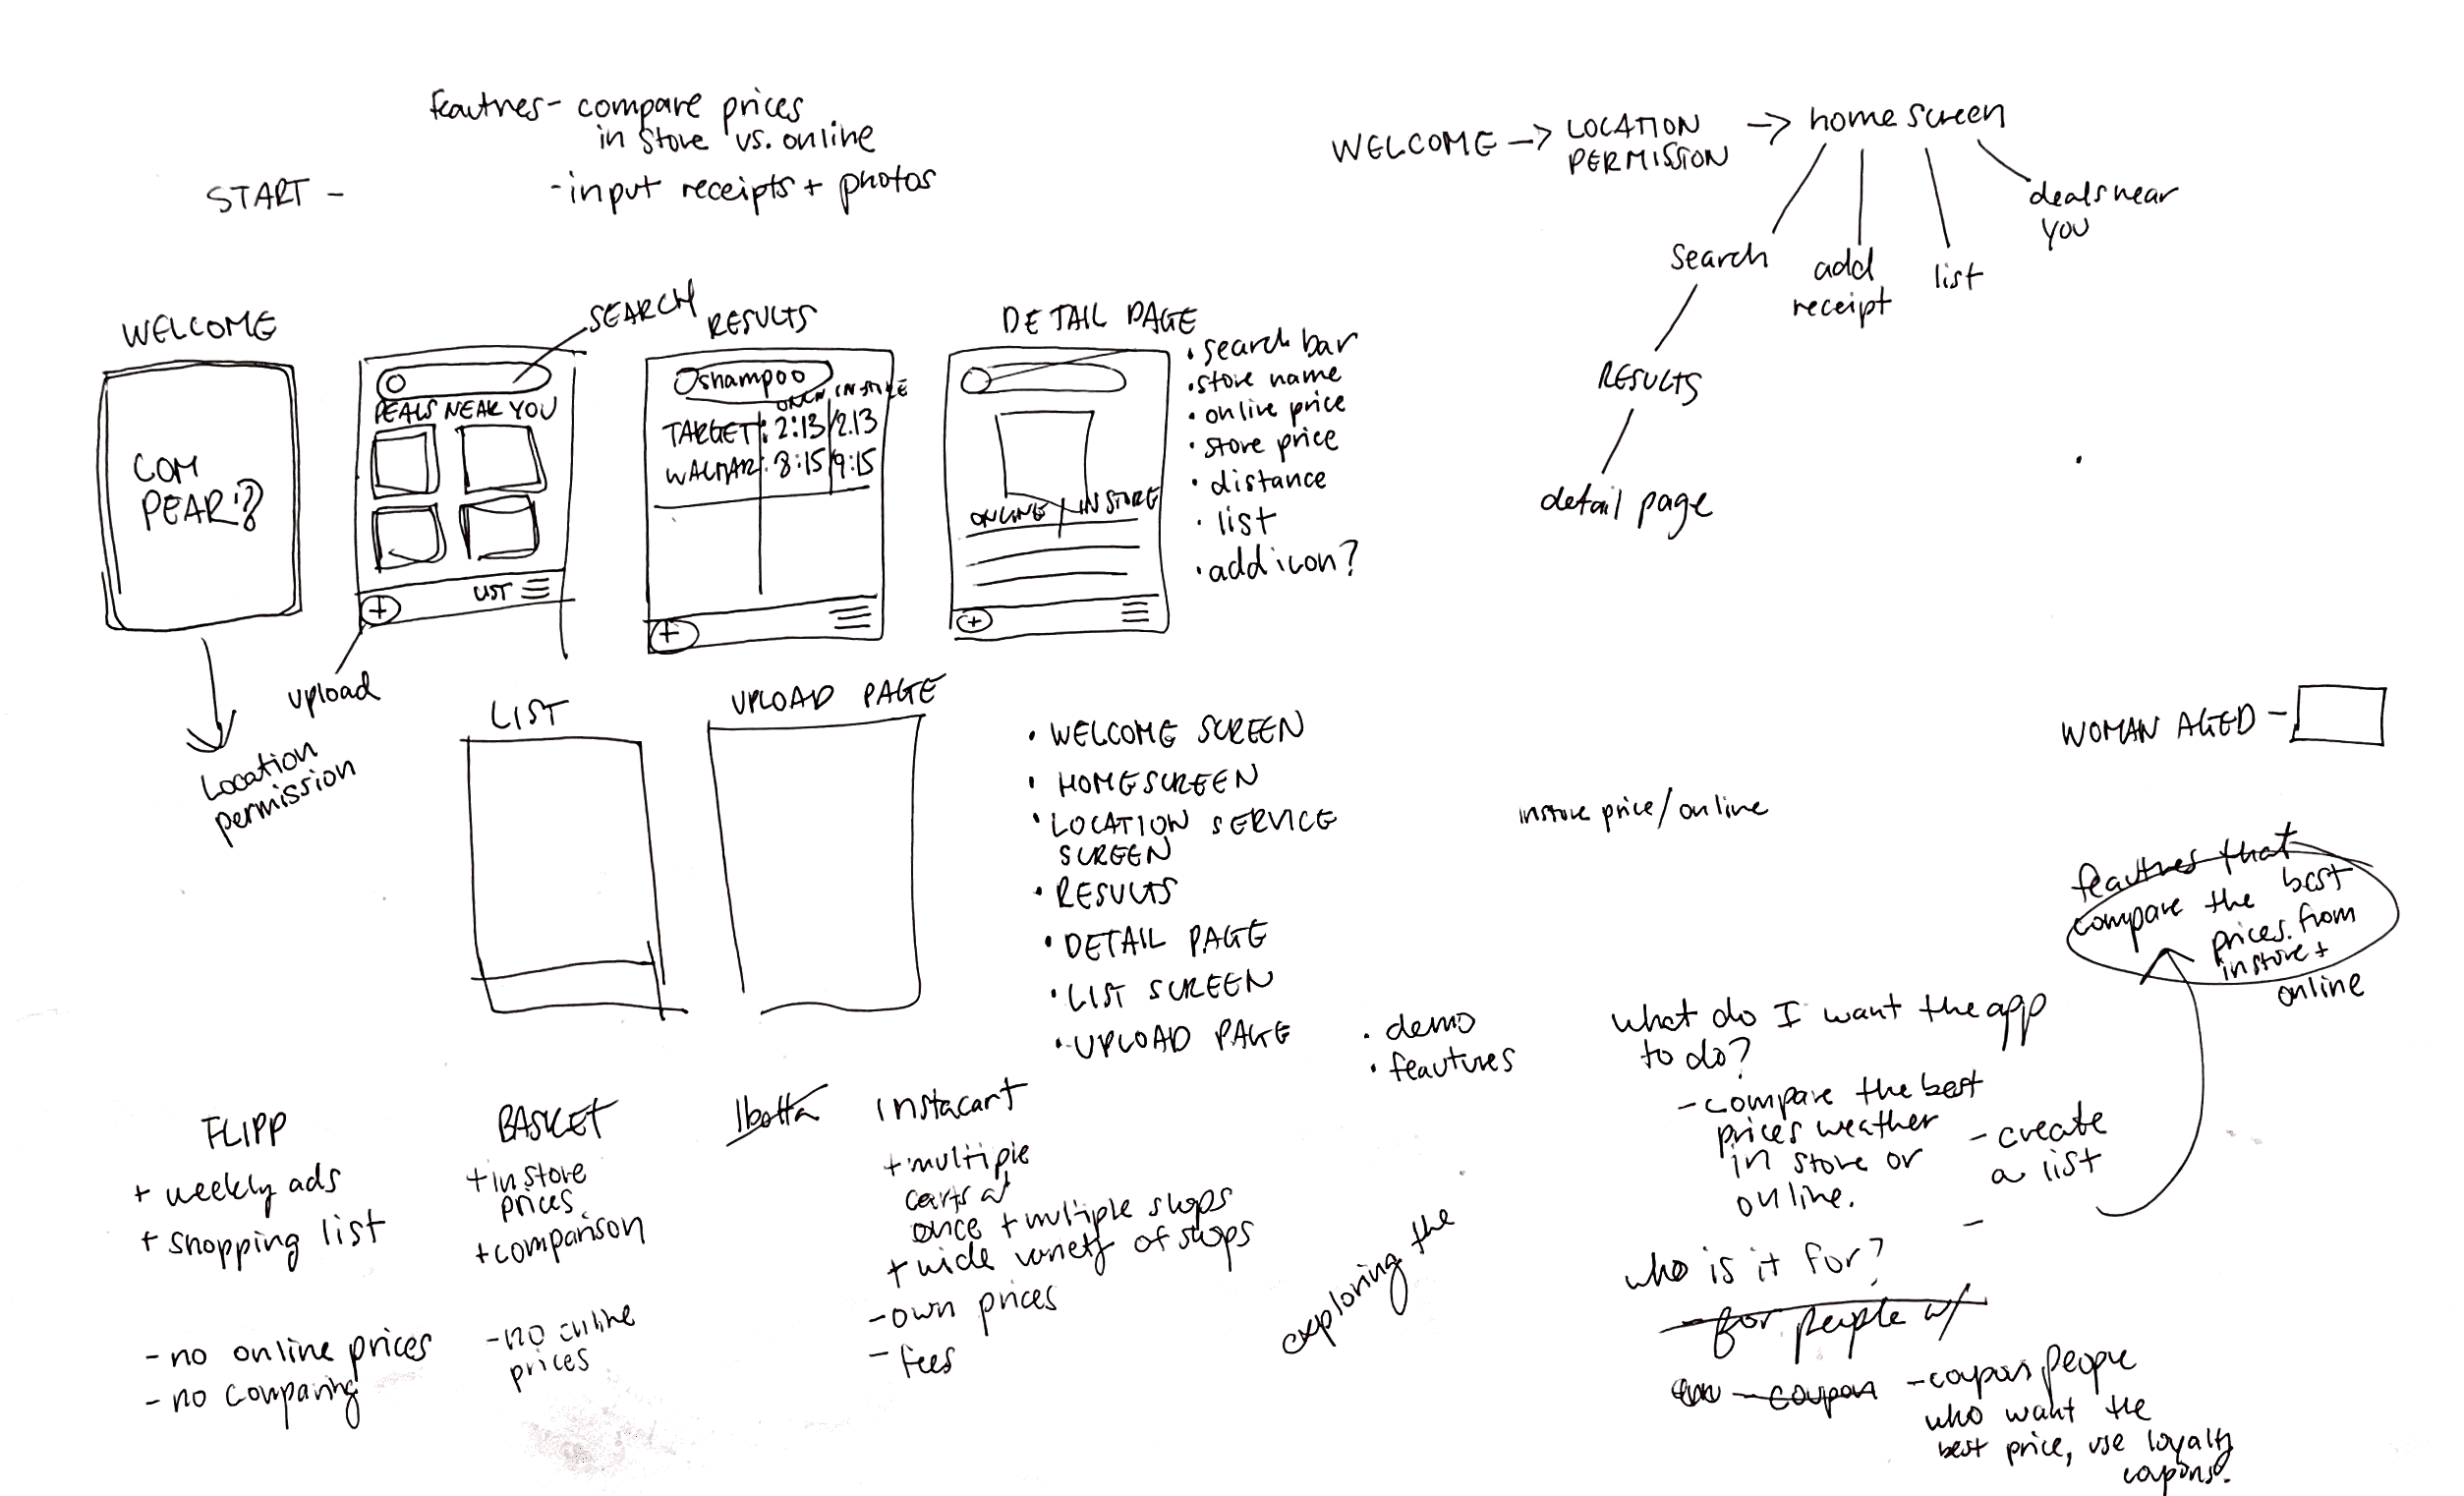 feautres - compare prices
in store vs. online
- input receipts + photos
START -
WELCOME → LOCATION PERMISSION → home screen
search
add
receipt
list
deals near
you
RESULTS
detail page
WELCOME
COM
PEAR?
Location
permission
SEARCH
DEALS NEAR YOU
LIST
upload
RESULTS
shampoo
IN STORE
TARGET: 2:13 2.13
WALMAR: 8:15 9:15
DETAIL PAGE
ONLINE IN STORE
• search bar
• store name
• online price
• store price
• distance
• list
• add icon?
LIST
UPLOAD PAGE
• WELCOME SCREEN
• HOMESCREEN
• LOCATION SERVICE
SCREEN
• RESULTS
• DETAIL PAGE
• LIST SCREEN
• UPLOAD PAGE
• demo
• feautures
instore price/online
WOMAN AGED -
feautres that
compare the best
prices from
instore +
online
what do I want the app
to do?
- compare the best
prices weather
in store or
online.
- create
a list
-
who is it for?
- for people w/
- coupon
- coupon people
who want the
best price, use loyalty
coupons.
FLIPP
+ weekly ads
+ shopping list
- no online prices
- no comparing
BASKET
+ in store
prices
+ comparison
- no online
prices
Ibotta
instacart
+ multiple
carts at
once + multiple shops
+ wide variety of shops
- own prices
- fees
exploring the